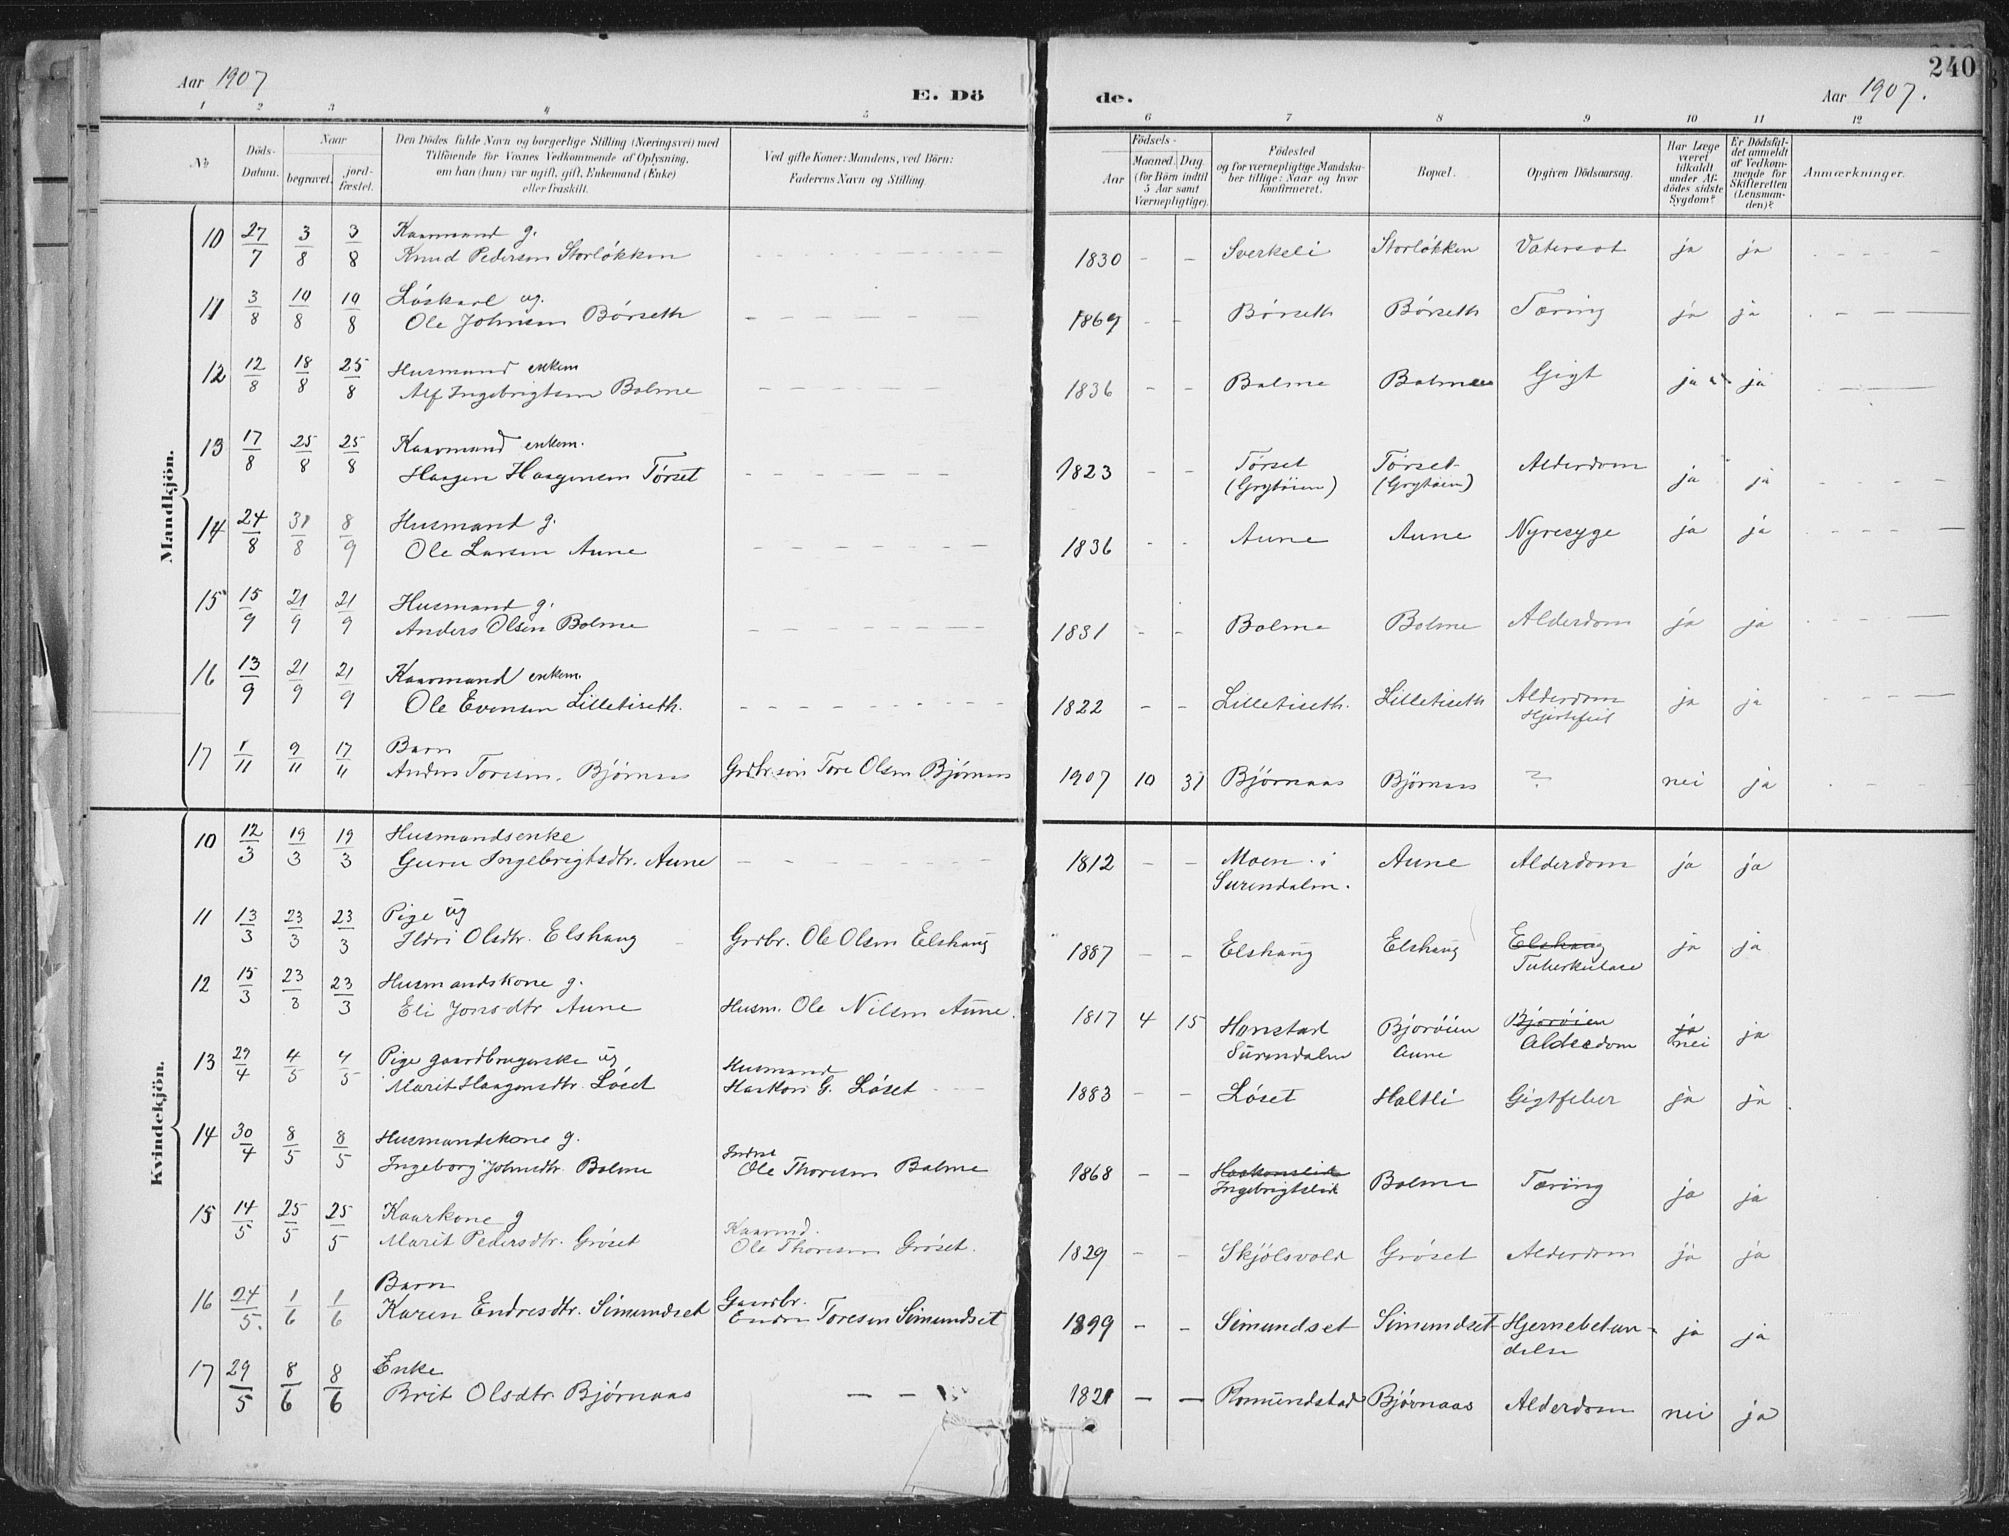 240
Aar 1907
E. Dö
de.
Aar 1907.
1 2 3 4 5 6 7 8 9 10 11 12
No
Döds-
Datum.
Naar
begravet.
jord-
fæstet.
Den Dödes fulde Navn og borgerlige Stilling (Næringsvei) med
Tilföiende for Voxnes Vedkommende af Oplysning,
om han (hun) var ugift, gift, Enkemand (Enke)
eller fraskilt.
Ved gifte Koner: Mandens, ved Börn:
Faderens Navn og Stilling.
Födsels-
Aar
Maaned. Dag.
(for Börn indtil
5 Aar samt
Værnepligtige).
Födested
og for værnepligtige Mandska-
ber tillige: Naar og hvor
konfirmeret.
Bopæl.
Opgiven Dödsaarsag.
Har Læge
været
tilkaldt
under Af-
dödes sidste
Sygdom?
Er Dödsfal-
det anmeldt
af Vedkom-
mende for
Skifteretten
(Lensman-
den)?
Anmærkninger.
Mandkjön.
10 27/7 3/8 3/8 Kaarmand g.
Knud Pedersen Storløkken 1830 - - Sverkeli Storløkken Vatersot ja ja
11 3/8 10/8 10/8 Løskarl ug.
Ole Johnsen Børseth 1869 - - Børseth Børseth Tæring ja ja
12 12/8 18/8 25/8 Husmand enkem
Alf Ingebrigtsen Bolme 1836 - - Bolme Bolme Gigt ja ja
13 17/8 25/8 25/8 Kaarmand enkem.
Haagen Haagensen Tørset 1823 - - Tørset Tørset Alderdom ja ja
(Grytøien) (Grytøien)
14 24/8 31/8 8/9 Husmand g.
Ole Larsen Aune 1836 - - Aune Aune Nyresyge ja ja
15 15/9 21/9 21/9 Husmand g.
Anders Olsen Bolme 1831 - - Bolme Bolme Alderdom ja ja
16 13/9 21/9 21/9 Kaarmand enkem.
Ole Evensen Lilletiseth. 1822 - - Lilletiseth. Lilletiseth Alderdom ja ja
Hjertefeil
17 1/11 9/11 17/11 Barn
Anders Toresen, Bjørnaas Grdbr.søn Tore Olsen Bjørnaas 1907 10 31 Bjørnaas Bjørnaas ? nei ja
Kvindekjön.
10 12/3 19/3 19/3 Husmandsenke
Guru Ingebrigtsdtr. Aune 1812 - - Moen i Aune Alderdom ja ja
Surendalen.
11 13/3 23/3 23/3 Pige ug
Ildri Olsdtr. Elshaug Grdbr. Ole Olsen Elshaug 1887 - - Elshaug Elshaug Elshaug ja ja
Tuberkulose
12 15/3 23/3 23/3 Husmandskone g.
Eli Jonsdtr Aune Husm. Ole Nilsen Aune. 1817 4 15 Honstad Bjorøien Bjorøien ja ja
Surendalen Aune Alderdom nei
13 29/4 4/5 4/5 Pige gaardbrugerske ug Husmand
Marit Haagensdtr. Løset Haakon G. Løset 1883 - - Løset Holtli Gigtfeber ja ja
14 30/4 8/5 8/5 Husmandskone g.
Ingeborg Johnsdtr. Bolme Ole Thoresen Bolme 1868 - - Haakonslid Bolme Tæring ja ja
Ingebrigtslid
15 14/5 25/5 25/5 Kaarkone g Kaarmd.
Marit Pedersdtr. Grøset Ole Thoresen Grøset. 1829 - - Skjølsvold Grøset Alderdom ja ja
16 24/5. 1/6 1/6 Barn Gaardbr.
Karen Endresdtr. Simundset Endre Toresen Simundset 1899 - - Simundset Simundset Hjernebetæn- ja ja
delse
17 29/5 8/6 8/6 Enke
Brit Olsdtr. Bjørnaas — — 1821 — — Romundstad Bjørnaas Alderdom nei ja